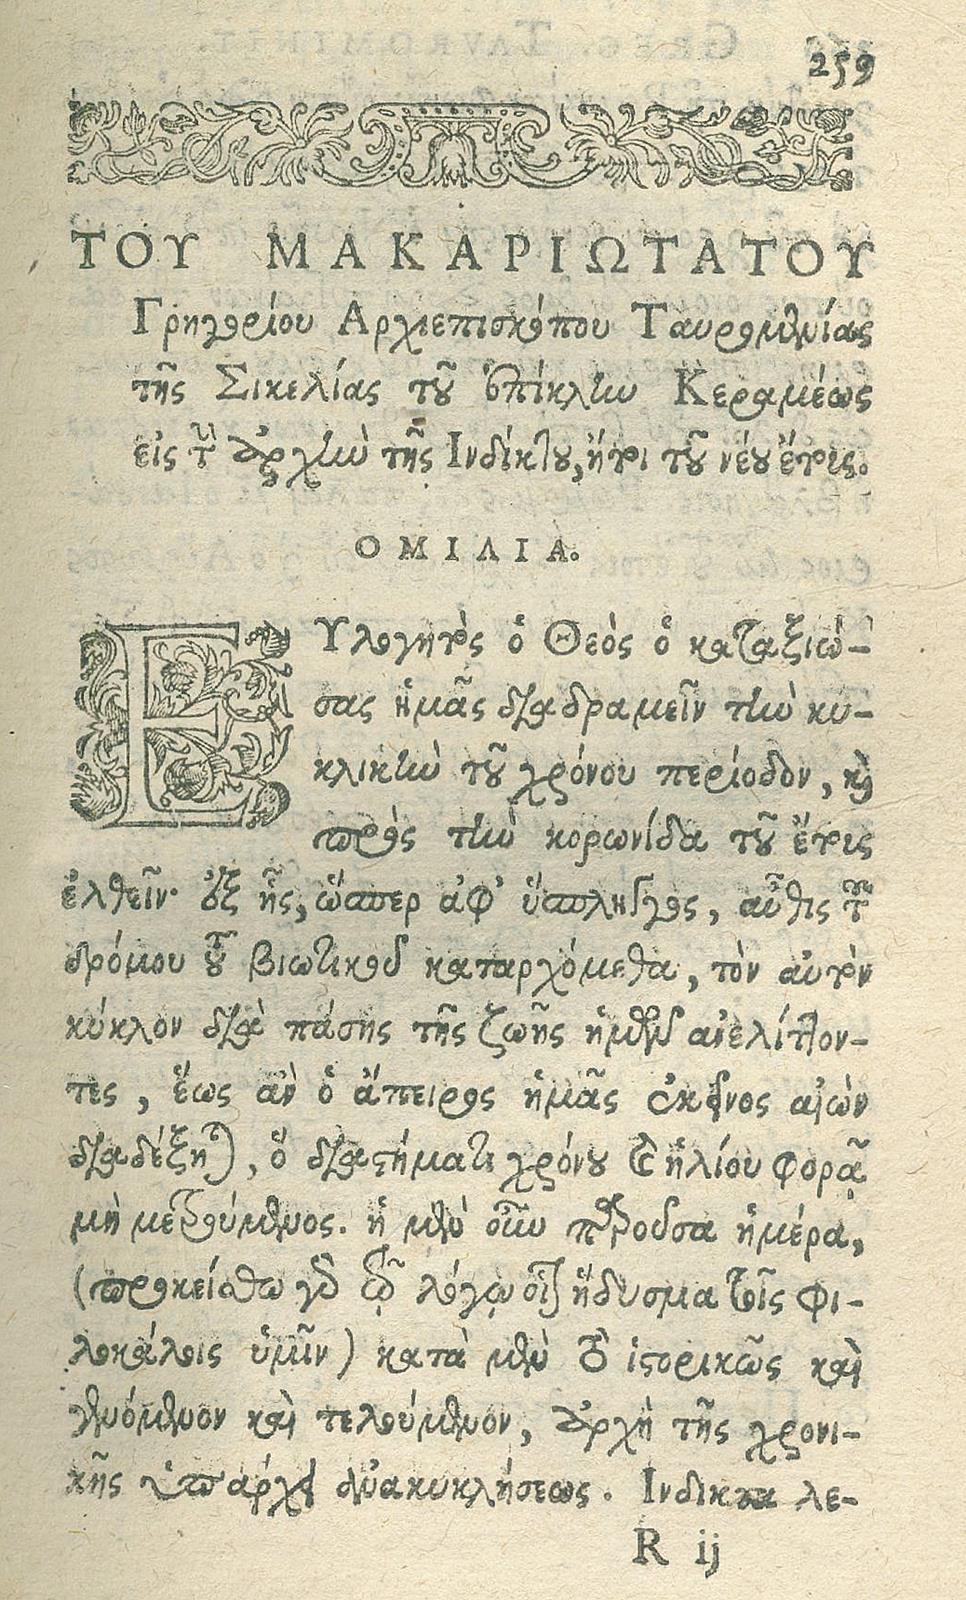 259
ΤΟΥ ΜΑΚΑΡΙΩΤΑΤΟΥ
Γρηγορίου Αρχιεπισκόπου Ταυρομενίας
τῆς Σικελίας τοῦ ἐπίκλην Κεραμέως
εἰς τὴν ἀρχὴν τῆς Ἰνδίκτου, ἤτοι τοῦ νέου ἔτους.
ΟΜΙΛΙΑ.
ΕΥλογητὸς ὁ Θεὸς ὁ καταξιώ-
σας ἡμᾶς διαδραμεῖν τὴν κυ-
κλικὴν τοῦ χρόνου περίοδον, καὶ
πρὸς τὴν κορωνίδα τοῦ ἔτους
ἐλθεῖν· ἐξ ἧς, ὥσπερ ἀφ' ὕσπληγγος, αὖθις τοῦ
δρόμου τοῦ βιωτικοῦ καταρχόμεθα, τὸν αὐτὸν
κύκλον διὰ πάσης τῆς ζωῆς ἡμῶν ἀνελίττον-
τες, ἕως ἂν ὁ ἄπειρος ἡμᾶς ἐκεῖνος αἰὼν
διαδέξηται, ὁ διαστήματι χρόνου καὶ ἡλίου φορᾷ
μὴ μετρούμενος. ἡ μὲν οὖν παροῦσα ἡμέρα,
(προκείσθω γὰρ τῷ λόγῳ οἷον ἥδυσμα τοῖς φι-
λοκάλοις ὑμῖν) κατὰ μὲν τὸ ἱστορικῶς καὶ
γενόμενον καὶ τελούμενον, ἀρχὴ τῆς χρονι-
κῆς ὑπάρχει ἀνακυκλήσεως. Ἰνδικτα λε-
R ij